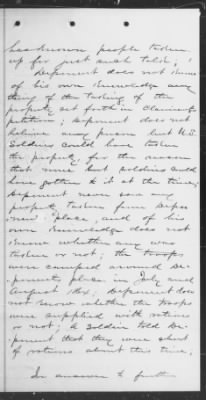 has known people taken
up for just such talk;
Deponent does not know
of his own knowledge any
thing of the taking of the
property set forth in Claimant's
petition; Deponent does not
believe any person but U.S.
Soldiers could have taken
the property, for the reason
that none but soldiers could
have gotten at it at the time;
Deponent never saw any
property taken from
place, and of his
own knowledge does not
know whether any was
taken or not; the troops
were camped around De-
ponents place in July and
August 1864. Deponent does
not know whether the troops
were supplied with rations
or not; a Soldier told De-
ponent that they were short
of rations about this time.
In answer to further